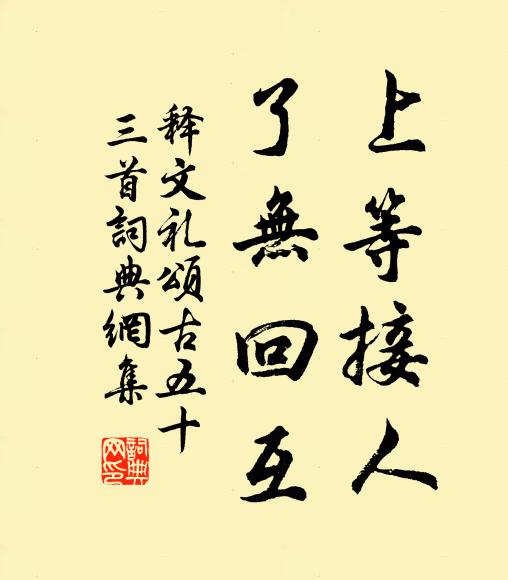 上等接人
了無回互
释文礼頌古五十
三首詞典網集
詞典网印